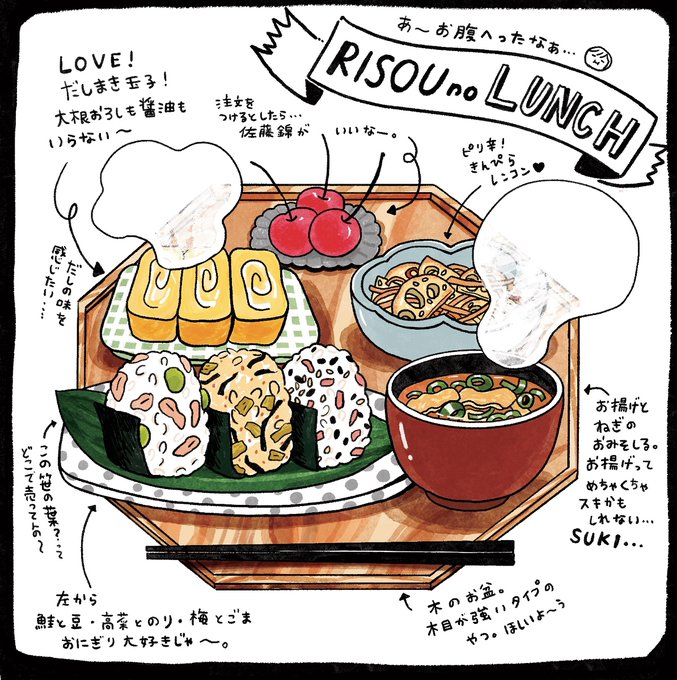 あ〜お腹へったなぁ…
RISOU no LUNCH
LOVE!
だしまき玉子!
大根おろしも醤油も
いらない〜
注文を
つけるとしたら…
佐藤錦が いいなー。
ピリ辛!
きんぴら
レンコン♥
だしの味を
感じたい…
この笹の葉?って
どこで売ってんの〜
お揚げと
ねぎの
おみそしる。
お揚げって
めちゃくちゃ
スキかも
しれない…
SUKI...
左から
鮭と豆・高菜とのり・梅とごま
おにぎり大好きじゃ〜。
木のお盆。
木目が強いタイプの
やつ。ほしいよ〜う